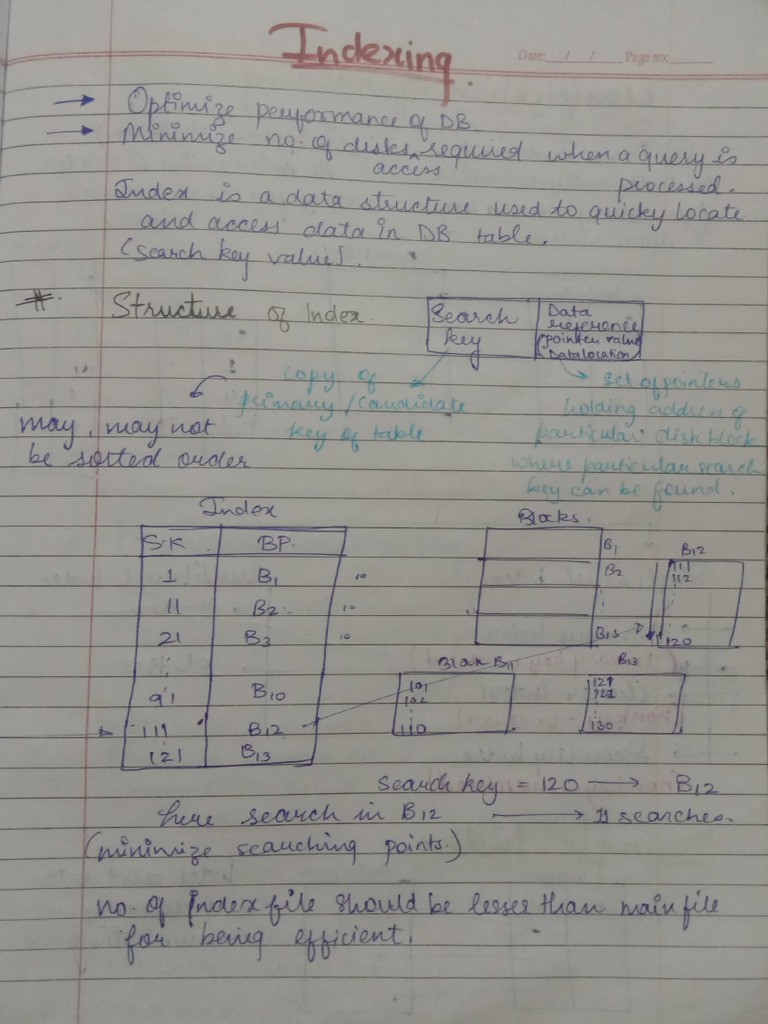 Indexing
Date: __/__/__ Page no:______
→ Optimize performance of DB
→ Minimize no. of disks required when a query is
access processed.
Index is a data structure used to quicky locate
and access data in DB table.
(search key value).
#. Structure of Index.
Search key
Data reference
(pointer value
Datalocation)
copy of
primary/candidate
key of table
set of pointers
holding address of
particular disk block
where particular search
key can be found.
may, may not
be sorted order
Index
S.K BP.
1 B1 10
11 B2 10
21 B3 10
91 B10
111 B12
121 B13
Blocks.
B1
B2
B13
B12
111
112
120
Block B11
101
102
110
B13
121
122
130
Search key = 120 → B12
here search in B12 → 11 searches.
(minimize searching points.)
no. of index file should be lesser than main file
for being efficient.